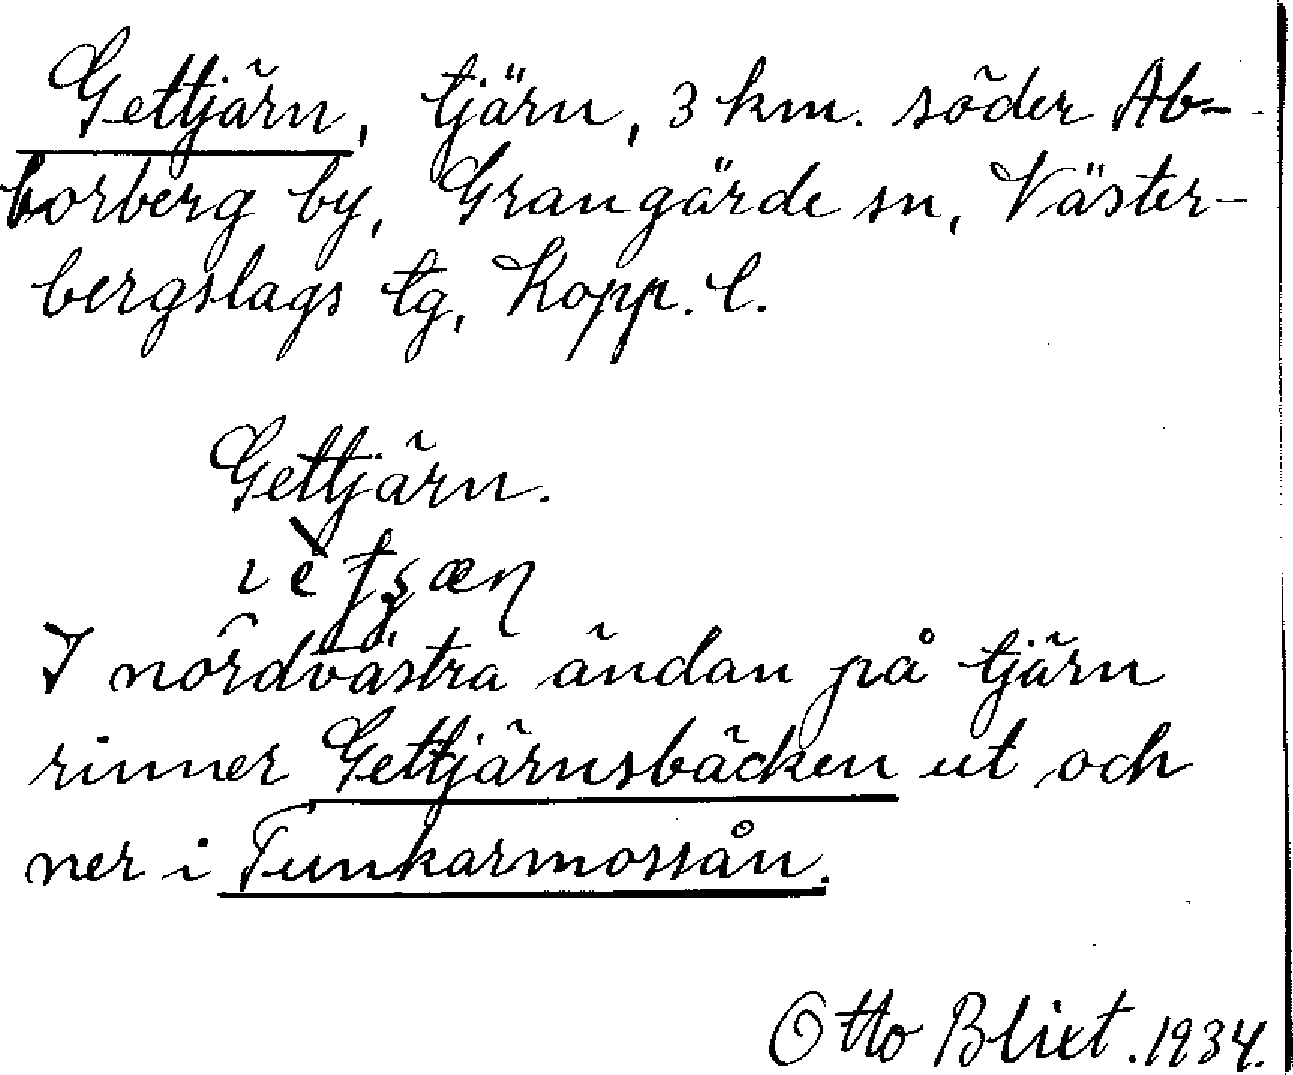 Gettjärn, tjärn, 3 km. söder Ab-
borberg by, Grangärde sn, Väster-
bergslags tg, Kopp. l.
Gettjärn.
I nordvästra ändan på tjärn
rinner Gettjärnsbäcken ut och
ner i Tunkarmossån.
Otto Blixt. 1934.